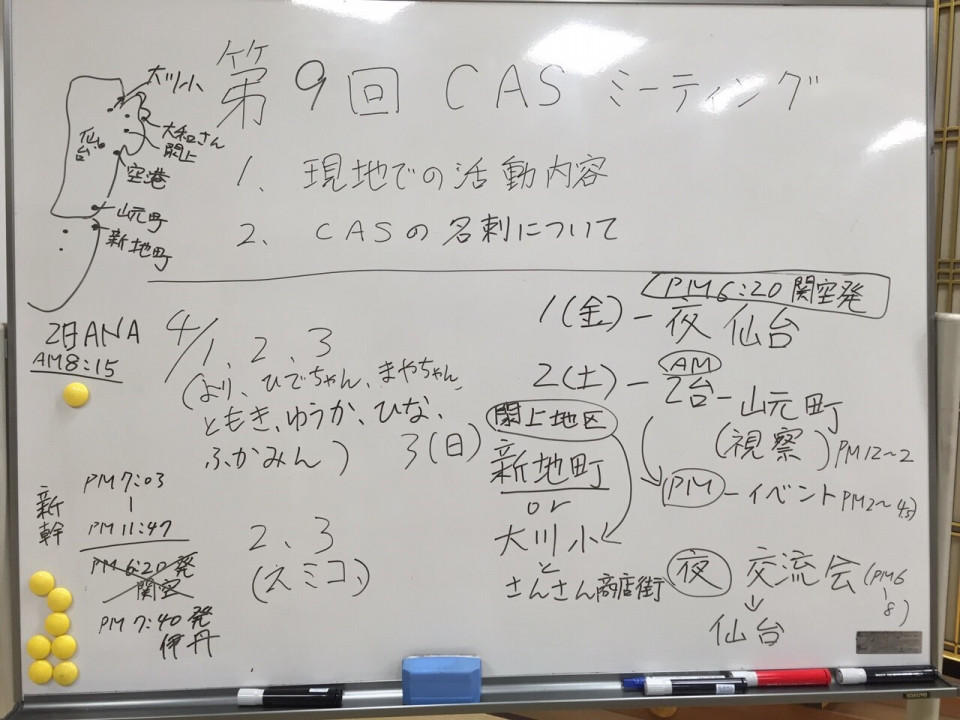 第9回 CAS ミーティング
1、現地での活動内容
2、CASの名刺について
大川小
仙台
大和さん
閖上
空港
山元町
新地町
2日ANA
AM8:15
4/1、2、3
(より、ひでちゃん、まやちゃん、
ともき、ゆうか、ひな、
ふかみん)
2、3
(スミコ、)
新幹
PM7:03
PM11:47
PM6:20発
関空
PM7:40発
伊丹
PM6:20関空発
1(金)－夜 仙台
2(土)－AM
2台－山元町
(視察)PM12~2
PM－イベントPM2~4,5)
夜 交流会(PM6
8)
仙台
3(日)
閖上地区
新地町
or
大川小
と
さんさん商店街